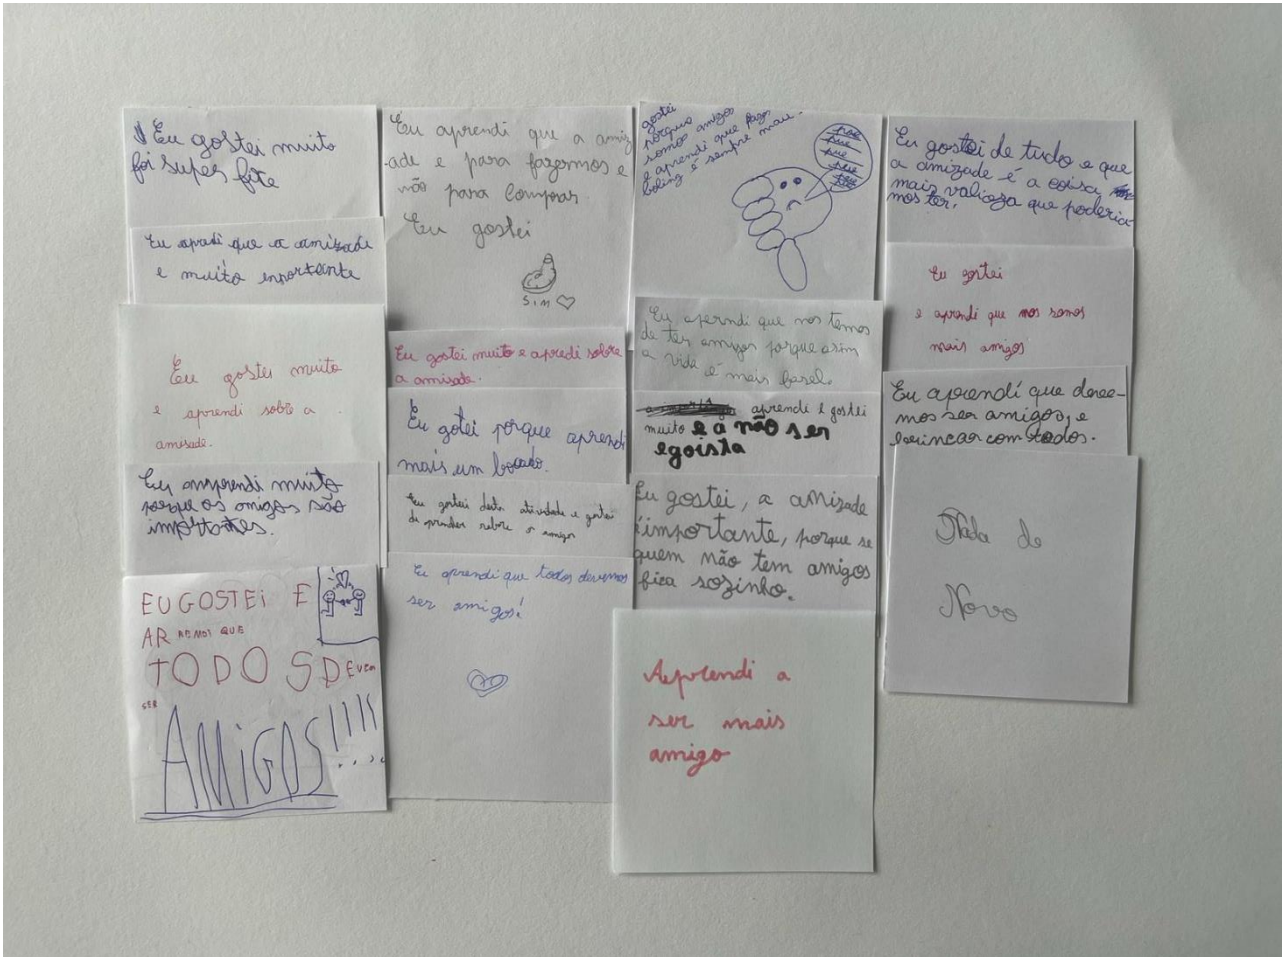 Eu gostei muito
foi super fixe
Eu apradi que a amizade
e muito inportante
Eu gostei muito
e aprendi sobre a
amisade.
Eu amprendi muito
porque os amigos são
importantes.
EU GOSTEI E
AR REMOS QUE
TODOS DEVEM
SER
AMiGOS!!!!
Eu aprendi que a amiz
-ade e para fazermos e
não para comprar.
Eu gostei
SIM
Eu gostei muito e apredi sobre
a amisate.
Eu gotei porque aprendi
mais um bocado.
Eu gostei desta atividade e gostei
de aprender sobre os amigos
Eu aprendi que todos devemos
ser amigos!
gostei
porque
somos amigos
e aprendi que fazer
boling é sempre mau.
Eu aprendi que nos temos
de ter amigos porque asim
a vida é mais fasel.
aprendi e gostei
muito e a não ser
egoista
Eu gostei, a amizade
é importante, porque se
quem não tem amigos
fica sozinho.
Aprendi a
ser mais
amigo
Eu gostei de tudo e que
a amizade é a coisa
mais valioza que poderia
mos ter.
Eu gostei
e aprendi que nos somos
mais amigos
Eu aprendí que devemos
mos ser amigos, e
brincar com todos.
Nada de
Novo